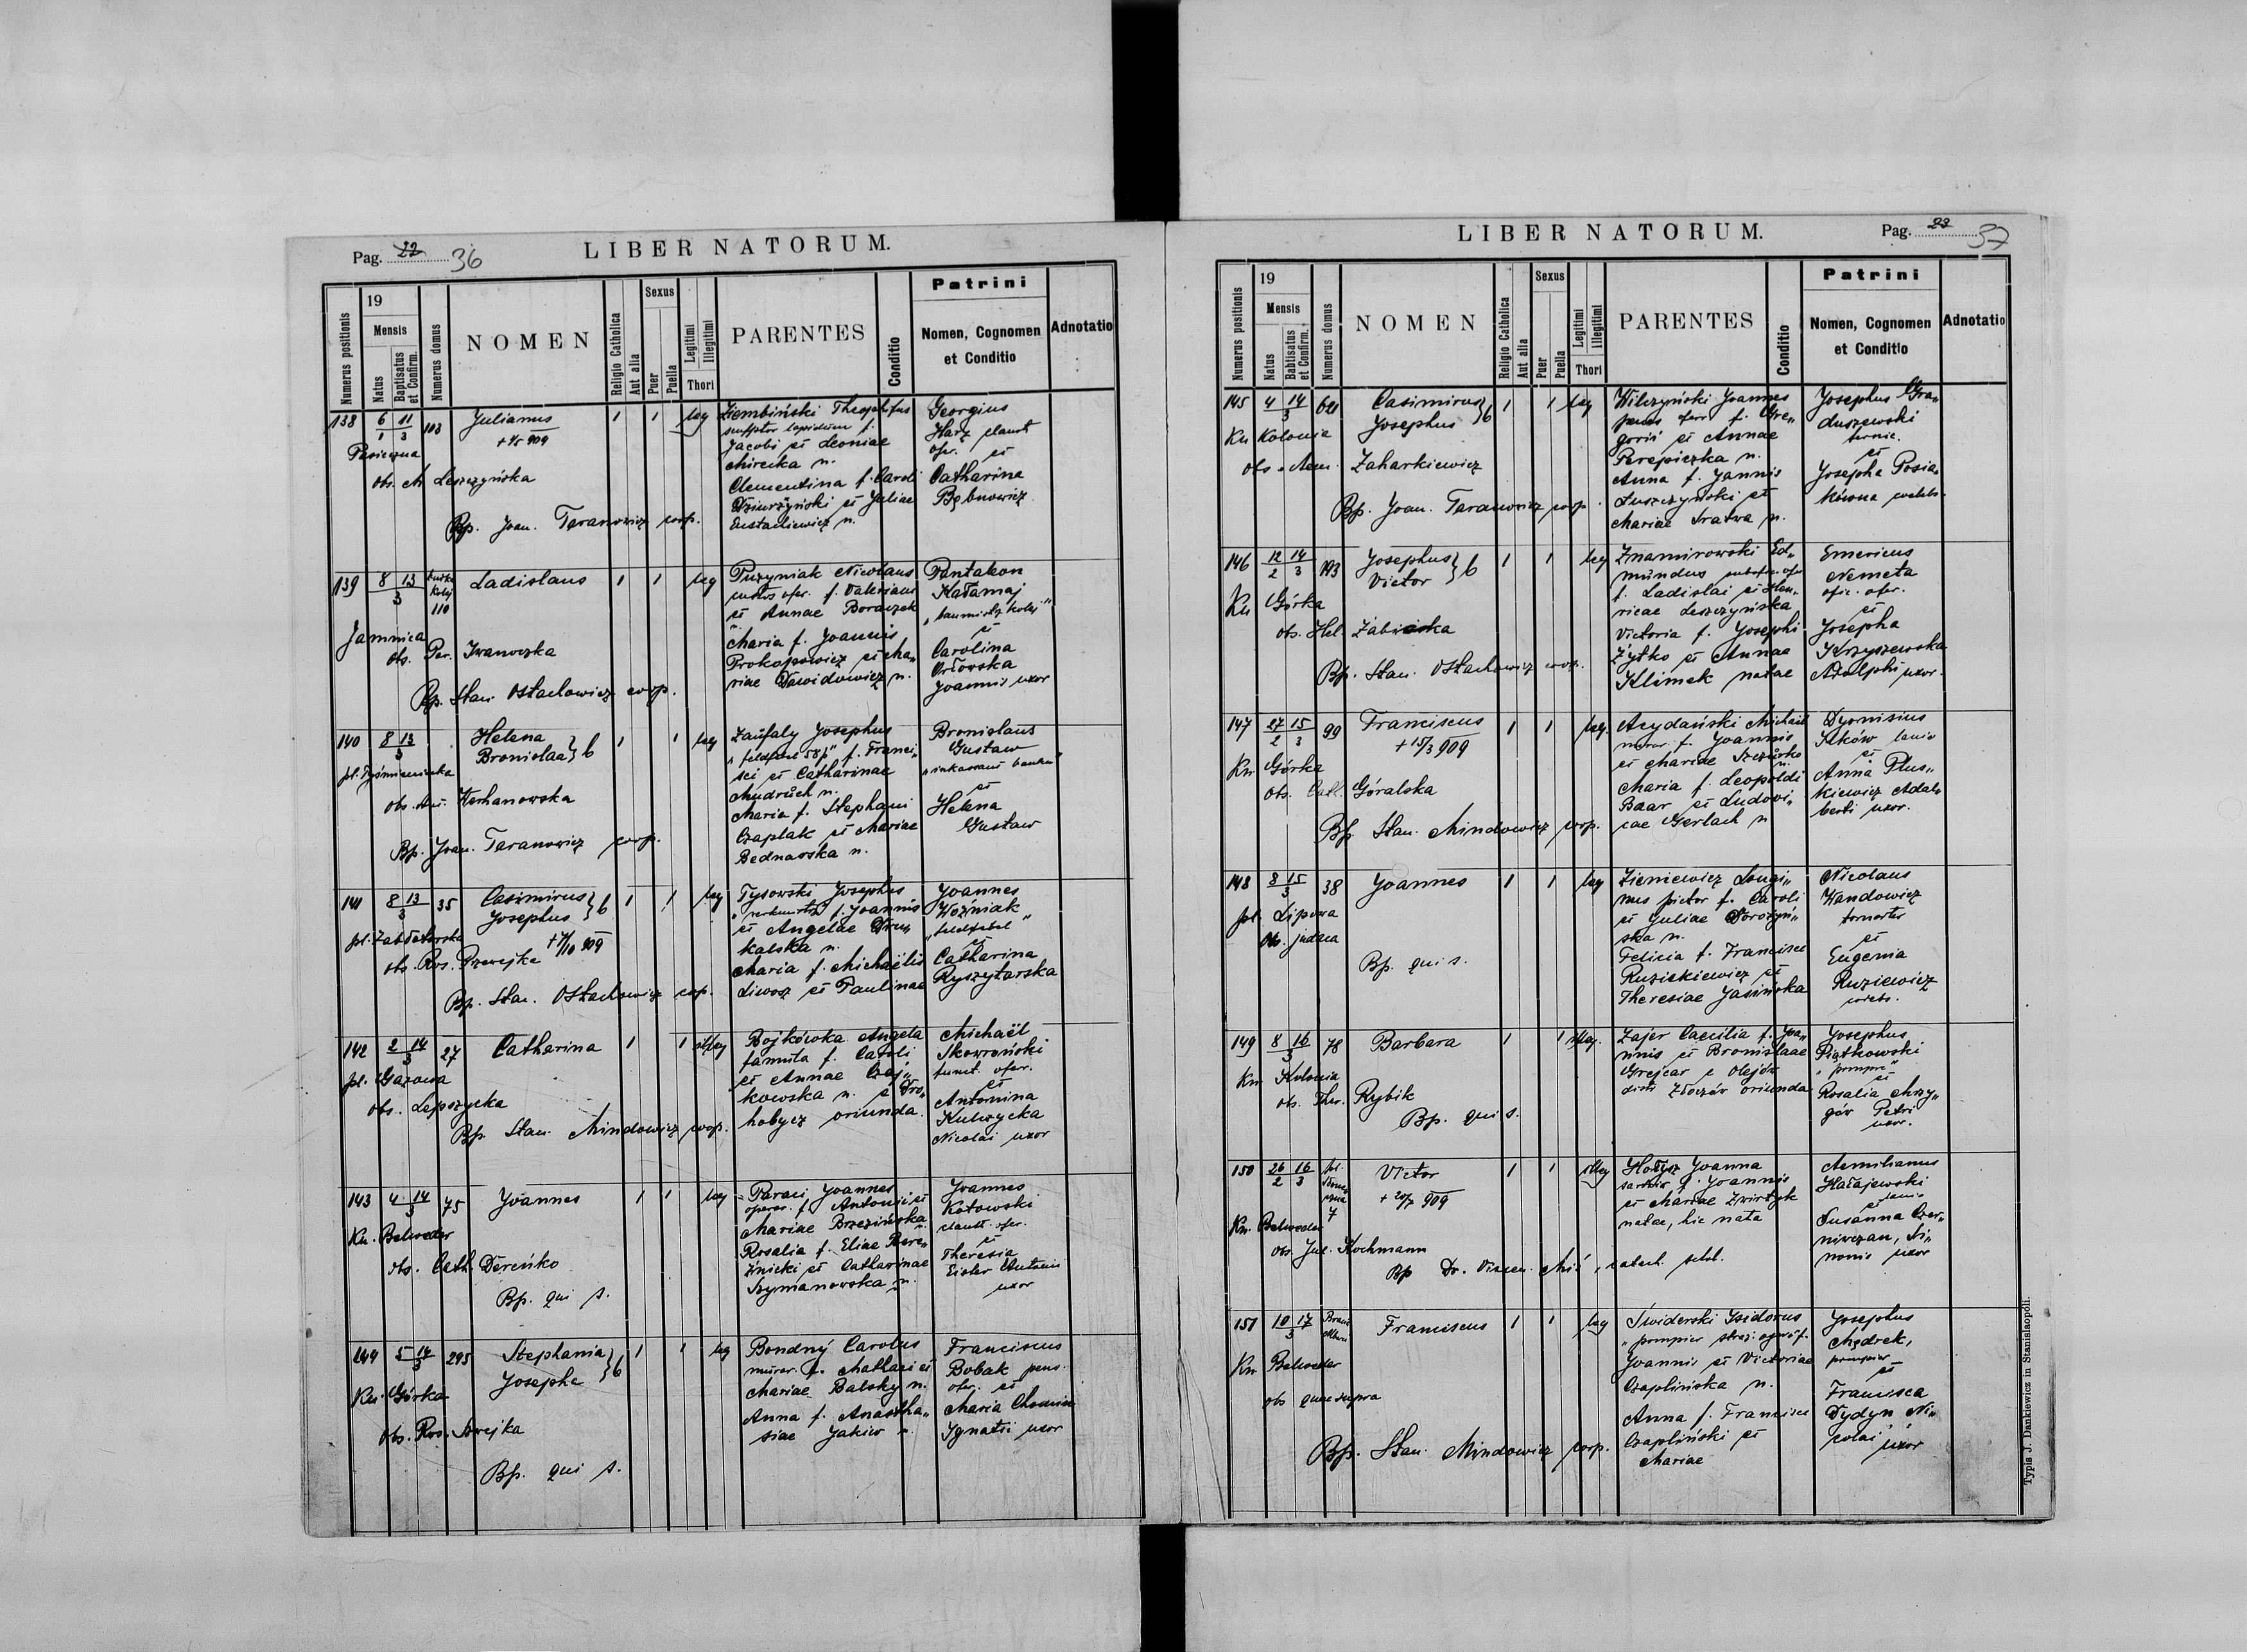 Pag. 22 36
LIBER NATORUM.
Numerus positionis
19
Mensis
Natus
Baptisatus et Confirm.
Numerus domus
NOMEN
Religio Catholica
Aut alia
Sexus
Puer
Puella
Legitimi
Illegitimi
Thori
PARENTES
Conditio
Patrini
Nomen, Cognomen
et Conditio
Adnotatio
138 6/1 11/3 103 Julianus 1 1 leg Ziembiński Theophilus Georgius
sculptor lapidum f. Harz
Pasieczna Jacobi et Leoniae ofer. et
Mirecka n. Catharina
obs. M. Leszczyńska Clementina f. Caroli
Dziurzyński et Juliae
Bp. Joan. Taranowicz coop. Eustachiewicz n.
139 8 13/3 110 Ladislaus 1 1 leg Puzyniak Nicolaus Pantaleon
custos ofer. f. Valeriani Kałamaj
et Annae Boraczek
n. et
Jamnica Maria f. Joannis Carolina
obs. Par. Iwanoczka Prokopowicz et Ma„ Orłowska
riae Dawidowicz n. Joannis uxor
Bp. Stan. Ostachowicz coop.
140 8 13/3 Helena 1 1 leg Josephus Bronislaus
Bronislaa } b „feldfebel 58 p" f. Franci„ Gustaw
pl. Tyśmienicka sci et Catharinae
Mudruch n. et
obs. Kerhanowska Maria f. Stephani Helena
Czaplak et Mariae Gustaw
Bp. Joan. Taranowicz coop. Bednarska n.
141 8 13/3 35 Casimirus 1 1 leg Tysowski Josephus Joannes
Josephus } b f. Joannis Woźniak
et Angelae Dru„ „feldfebel"
kalska n. et
obs. Ros. Szwejka Maria f. Michaëlis Catharina
Liwosz et Paulinae Ryszytarska
Bp. Stan. Ostachowicz coop.
142 2 14/3 27 Catharina 1 1 illeg Bojkówka Angela Michaël
famula f. Caroli Skowroński
pl. Gazowa et Annae Czaj„ funct. ofer.
kowska n. e Dro„ et
obs. Lepszycka hobycz oriunda. Antonina
Kulczycka
Bp. Stan. Mindowicz coop. Nicolai uxor
143 4 14/3 75 Joannes 1 1 leg Joannes Joannes
operar. f. Antonii et Kotowski
Kn. Belweder Mariae Brzezińska n. claust. ofer.
Rosalia f. Eliae Bere„ et
obs. Cath. Dereńko źnicki et Catharinae Theresia
Szymanowska n. Eisler Antonii
Bp. qui s. uxor
144 5 14/3 295 Stephania 1 1 leg Bondny Carolus Franciscus
Josepha } b murar. f. Mathaei et Bobak pens.
Kn. Górka Mariae Balsky n. ofer. et
Anna f. Anastha„ Maria
obs. Ros. Szwejka siae Jakiw n. Ignatii uxor
Bp. qui s.
LIBER NATORUM.
Pag. 23 37
Numerus positionis
19
Mensis
Natus
Babtisatus et Confirm.
Numerus domus
NOMEN
Religio Catholica
Aut alia
Sexus
Puer
Puella
Legitimi
Illegitimi
Thori
PARENTES
Conditio
Patrini
Nomen, Cognomen
et Conditio
Adnotatio
145 4 14/3 Casimirus 1 1 leg Wilczyński Joannes Josephus Gra„
Josephus } b ofer f. Gre„ duszewski
Kn Kolonia gorii et Annae
Perepiczka n. et
obs. Zaharkiewicz Anna f. Joannis Josepha Posia„
Łuszczyński et kówna coelebs.
Bp. Joan. Taranowicz coop. Mariae Tratwa n.
146 12/2 14/3 193 Josephus 1 1 leg Znamirowski Ed„ Emericus
Victor } b mundus Nemeta
Kn Górka f. Ladislai et Hen„ ofic. ofer.
ricae Leszczyńska et
obs. Hel. Victoria f. Josephi Josepha
Żytko et Annae Krzyszewska
Bp. Stan. Ostachowicz coop. Klimek natae Adolphi uxor.
147 27/2 15/3 99 Franciscus 1 1 leg. Michaël Dyonisius
+ 15/3 909 murar. f. Joannis Ilków lanio
Kn. Górka et Mariae n. et
Maria f. Leopoldi Anna Plus„
obs. Cath. Góralska Baar et Ludovi„ kiewicz Adal„
cae Gerlach n berti uxor.
Bp. Stan. Mindowicz coop.
148 8 15/3 38 Joannes 1 1 leg Zieniewicz Longi„ Nicolaus
nus pictor f. Caroli Wandowicz
pl. Lipowa et Juliae Dorożyń„ fornator
ska n. et
obs. judaea Felicia f. Francisci Eugenia
Ruzickiewicz et Ruziewicz
Bp. qui s. Theresiae Jasińska coelebs.
149 8 16/3 78 Barbara 1 1 illeg. Zajer Caecilia f. Joa„ Josephus
nnis et Bronislaae Piątkowski
Kn Kolonia Grejcar e Olejów „pompier"
distr Złoczów oriunda et
obs. Ther. Rybik Rosalia Mrzy„
gór Petri
Bp. qui s. uxor.
150 26/2 16/3 7 Victor 1 1 illeg Hołysz Joanna Aemilianus
f. Joannis Hałajewski
+ 20/7 909 et Mariae Zwirtyk lanio
natae, hic nata et
Kn. Belweder Susanna Czer„
obs. Jul. Kochmann niwczan, Si„
monis uxor
Bp Dr. Vincen. Miś, catech. schol.
151 10 17/3 Franciscus 1 1 leg Świderski Isidorus Josephus
Mędrek,
Kn Belweder Joannis et Victoriae pompier
Czaplińska n. et
obs quae supra Anna f. Francisci Francisca
Czapliński et Dydyn Ni„
Bp. Stan. Mindowicz coop. Mariae colai uxor
Typis J. Dankiewicz in Stanislaopoli.